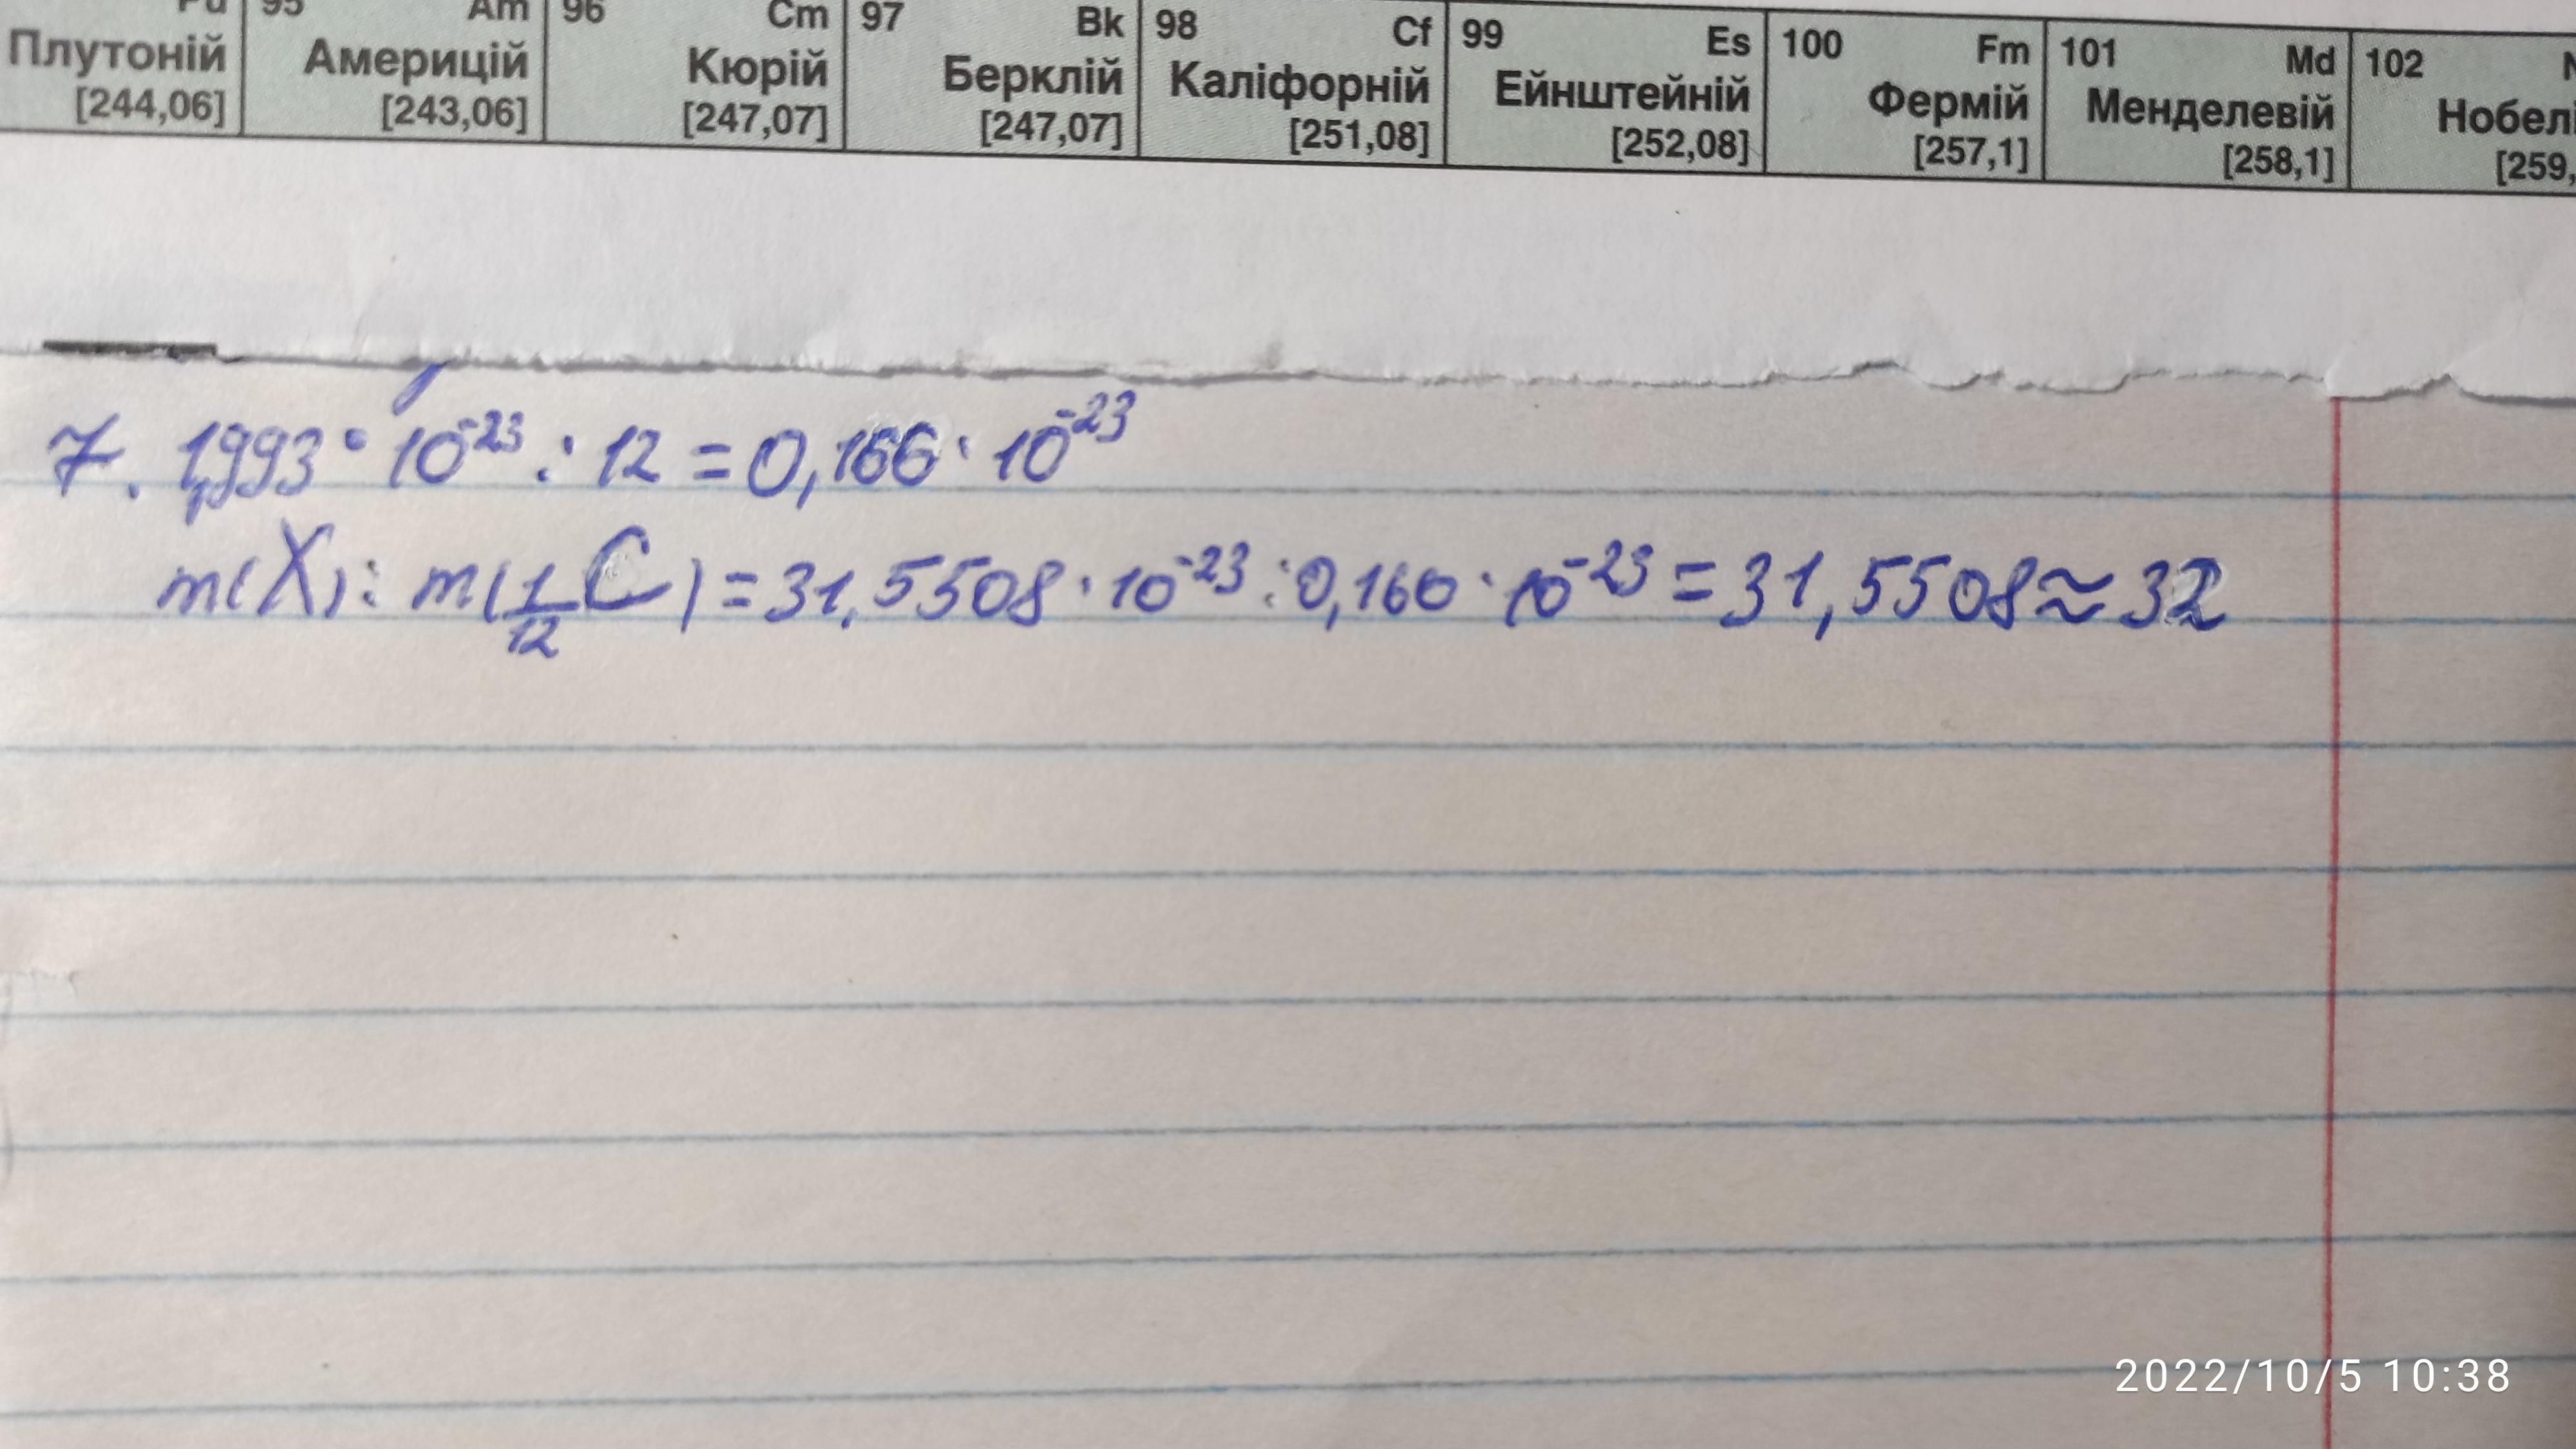 95 Am 96 Cm 97 Bk 98 Cf 99 Es 100 Fm 101 Md 102
Плутоній Америцій Кюрій Берклій Каліфорній Ейнштейній Фермій Менделевій
[244,06] [243,06] [247,07] [247,07] [251,08] [252,08] [257,1] [258,1] [259,
7. 1,993 · 10⁻²³ : 12 = 0,166 · 10⁻²³
m(X) : m(1/12 C) = 31,5508 · 10⁻²³ : 0,160 · 10⁻²³ = 31,5508 ≈ 32
2022/10/5 10:38